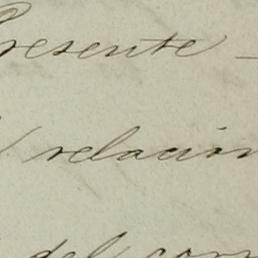 Presente -
relacion
del corr